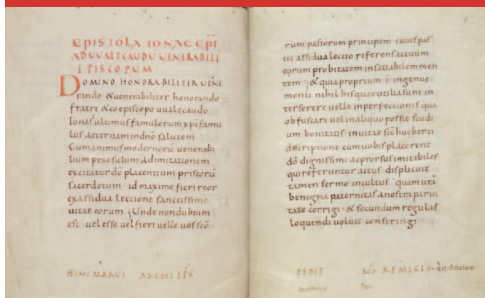 EPISTOLA IONAE EPI
AD UUALCAUDU UENERABILE
EPISCOPUM
DOMINO HONORABILITER UENE
rando & uenerabiliter honorando
fratri & coepiscopo uualcaudo
Ionas ulmus famulorum xpi famu
lus aeternam indno salutem
Cum animus modernorū uenerabi
lium praesulum ad imitationem
excitatur dō placentium priscorū
sacerdotum id maxime fieri reor
ex assidua lectione sanctissime
uitae eorum; Unde non dubium
est uel esse uel fieri uelle uos scō
HINCMARUS ARCHIEPS
rum pastorum principem cuius pus
cit assidua lectio referens actuum
eorum probitatem insatiabilem men
tem; & quia proprium ē ingenuę
menti nihil his quae utilia sunt in
terserere uelle inperfectionis qua
obfuscari uel in aliquo possit scudi
um bonitatis inuitae scī hucberti
descriptione cum uobis placerent
dō dignissimi ac prorsus imitabiles
qui referuntur actus displicuit
tamen sermo incultus quam uīa
benigna paternitas a nostra parui
tate corrigi & secundum regulas
loquendi uoluit conseringi
DEDIT
REMIGIO